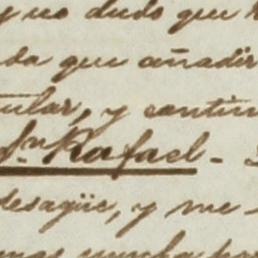 y no dudo que
que añadir
tular, y contin
Sn Rafael -
desagüe, y me
mucha